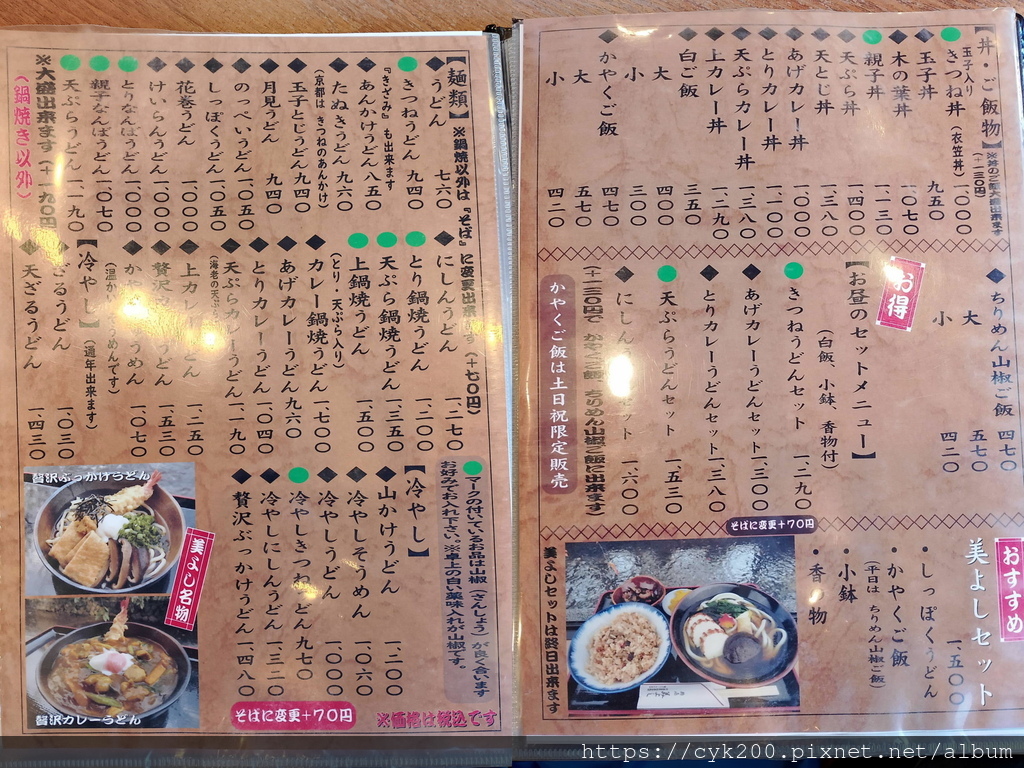 【麺類】※鍋焼以外は『そば』に変更出来ます(+七〇円)
うどん 七六〇
きつねうどん 九四〇
『きざみ』も出来ます
あんかけうどん 八五〇
たぬきうどん 九六〇
(京都は きつねのあんかけ)
玉子とじうどん 九四〇
月見うどん 九四〇
のっぺいうどん 一、〇五〇
しっぽくうどん 一、〇五〇
花巻うどん 一、〇〇〇
けいらんうどん 一、〇〇〇
とりなんばうどん 一、〇〇〇
親子なんばうどん 一、〇七〇
天ぷらうどん 一、一九〇
※大盛出来ます(+一九〇円)
(鍋焼き以外)
にしんうどん 一、二七〇
とり鍋焼うどん 一、二〇〇
天ぷら鍋焼うどん 一、三五〇
上鍋焼うどん 一、五〇〇
(とり・天ぷら入り)
カレー鍋焼うどん 一、七〇〇
あげカレーうどん 九六〇
とりカレーうどん 一、〇四〇
天ぷらカレーうどん 一、一九〇
(海老の天ぷら
上カレーうどん 一、二五〇
贅沢 うどん 一、五七〇
かやく うめん 一、〇七〇
(温かい うめんです)
【冷やし】(通年出来ます)
ざるうどん 一、〇三〇
天ざるうどん 一、四三〇
マークの付いているお品は山椒(さんしょう)が良く合います
お好みでお入れ下さい。※卓上の白い薬味入れが山椒です。
【冷やし】
山かけうどん 一、二〇〇
冷やしそうめん 一、〇六〇
冷やしうどん 一、〇〇〇
冷やしきつねうどん 九七〇
冷やしにしんうどん 一、三二〇
贅沢ぶっかけうどん 一、四八〇
そばに変更+70円
※価格は税込です
贅沢ぶっかけうどん
美よし名物
贅沢カレーうどん
【丼・ご飯物】※丼のご飯大盛出来ます
(十二三〇円)
玉子入り
きつね丼(衣笠丼) 一、〇〇〇
玉子丼 九五〇
木の葉丼 一、〇七〇
親子丼 一、一三〇
天ぷら丼 一、四〇〇
天とじ丼 一、三八〇
あげカレー丼 一、〇〇〇
とりカレー丼 一、一〇〇
天ぷらカレー丼 一、三八〇
上カレー丼 一、二九〇
白ご飯 三五〇
大 四〇〇
小 三〇〇
かやくご飯 四七〇
大 五七〇
小 四二〇
ちりめん山椒ご飯 四七〇
大 五七〇
小 四二〇
お得
【お昼のセットメニュー】
(白飯、小鉢、香物付)
きつねうどんセット 一、二九〇
あげカレーうどんセット 一、三〇〇
とりカレーうどんセット 一、三八〇
天ぷらうどんセット 一、五三〇
にしんうどんセット 一、六〇〇
(十一三〇円で かやくご飯、ちりめん山椒ご飯に出来ます)
かやくご飯は土日祝限定販売
そばに変更+70円
おすすめ
美よしセット
一、五〇〇
・しっぽくうどん
・かやくご飯
(平日は ちりめん山椒ご飯)
・小鉢
・香物
美よしセットは終日出来ます
https://cyk200.pixnet.net/album